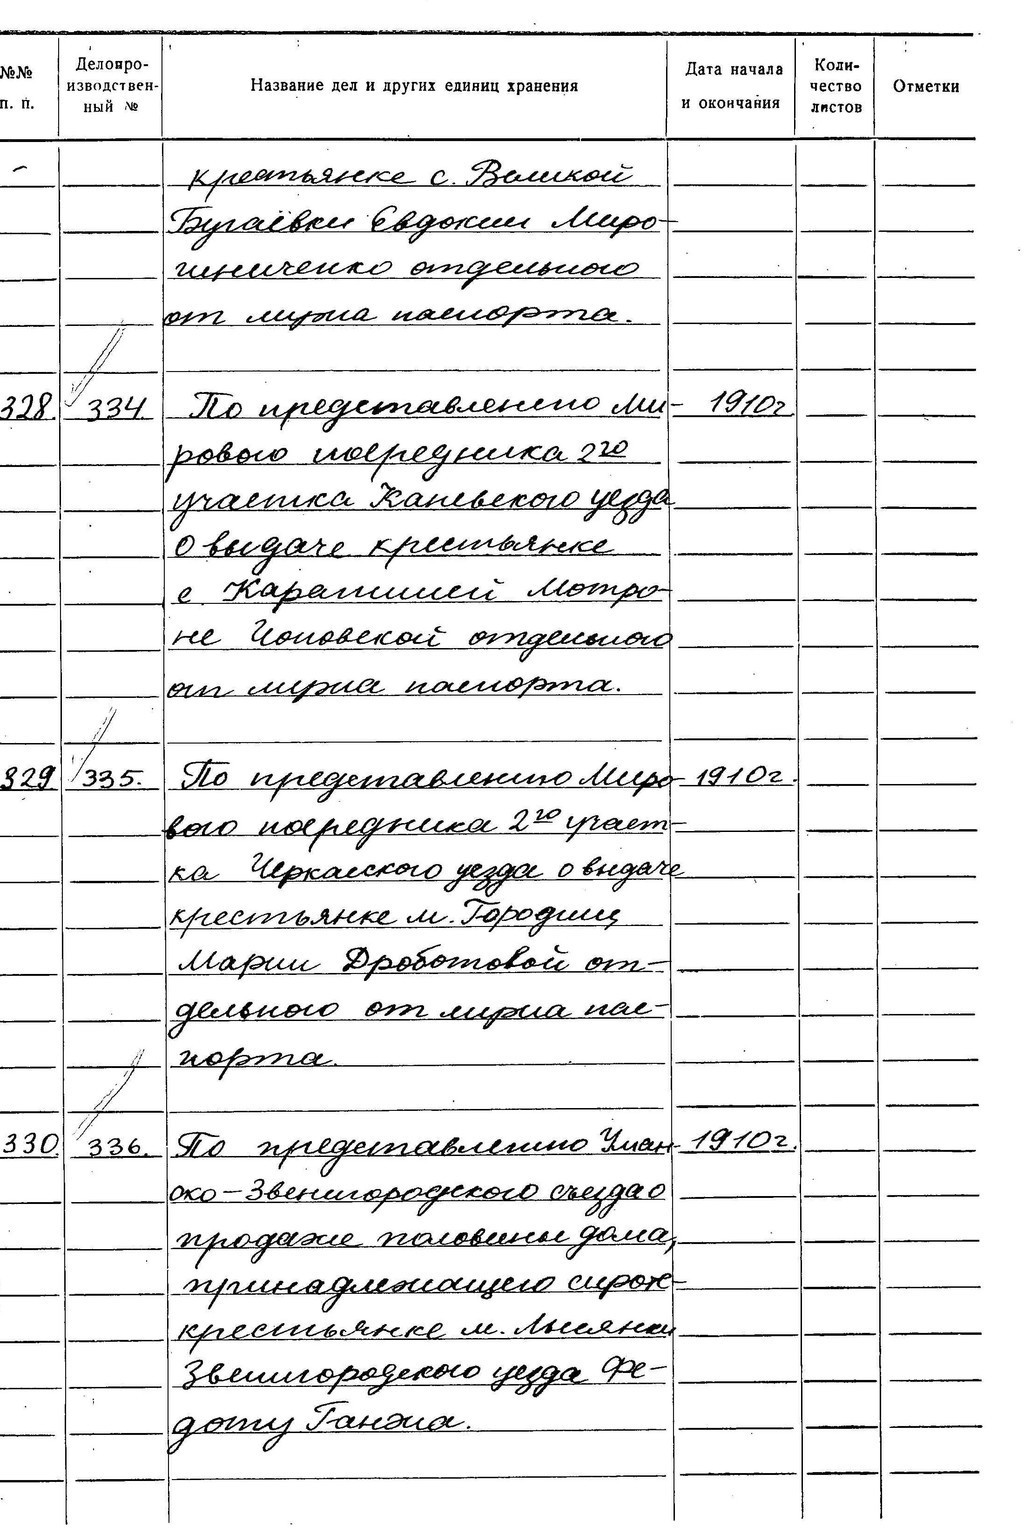 №№ п. п.
Делопро-
изводствен-
ный №
Название дел и других единиц хранения
Дата начала
и окончания
Коли-
чество
листов
Отметки
крестьянке с. Великой
Бугаёвки Евдокии Миро-
шниченко отдельного
от мужа паспорта.
328. 334. По представлению Ми- 1910г
рового посредника 2го
участка Каневского уезда
о выдаче крестьянке
с. Карапишей Мотро-
не Поповской отдельного
от мужа паспорта.
329 335. По представлению Миро- 1910г.
вого посредника 2го участ-
ка Черкасского уезда о выдаче
крестьянке м. Городищ
Марии Дроботовой от-
дельного от мужа пас-
порта.
330. 336. По представлению Уман- 1910г.
ско-Звенигородского съезда о
продаже половины дома,
принадлежащего сирот-
крестьянке м. Лысянки
Звенигородского уезда Фе-
доту Ганжа.